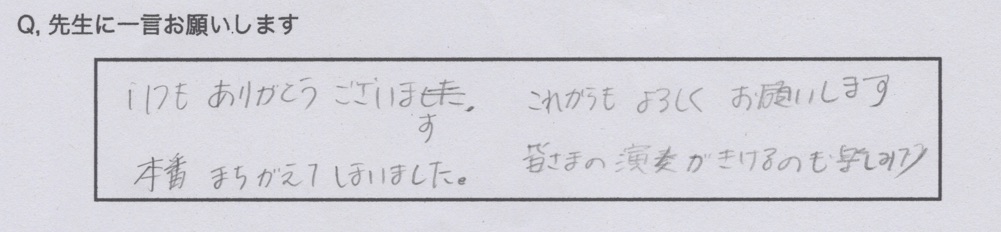 Q, 先生に一言お願いします
いつも ありがとう ございます。
本番 まちがえて しまいました。
これからも よろしく お願いします
皆さまの 演奏がきけるのも 楽しみです